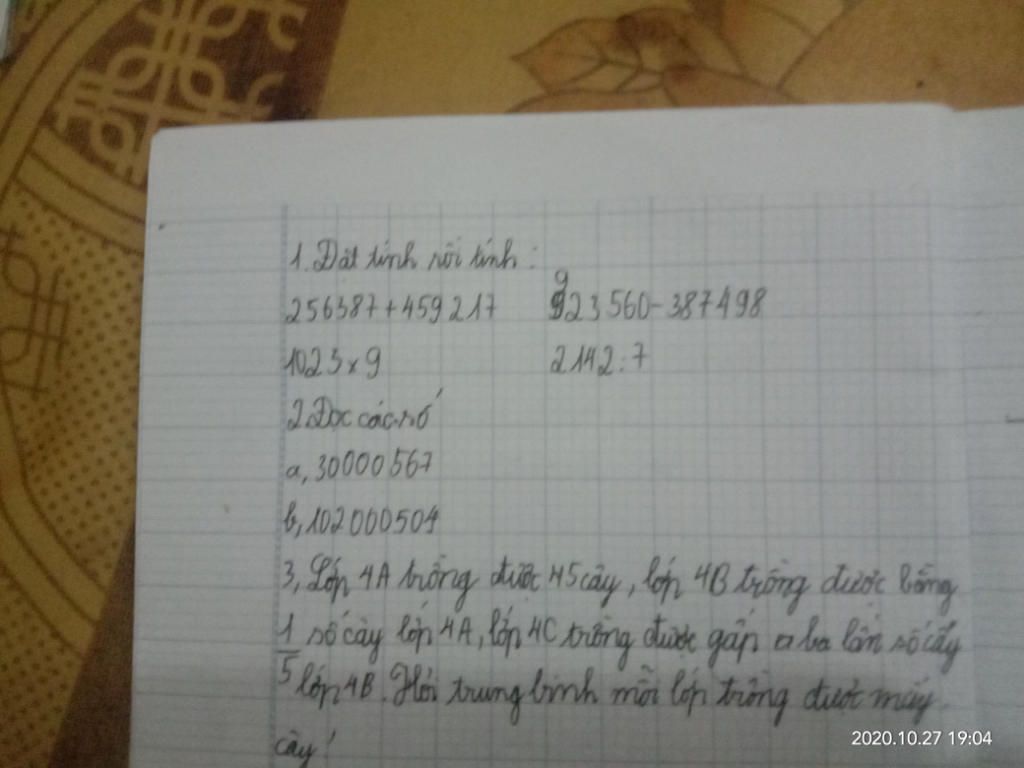 1. Đặt tính rồi tính:
256387+459217 923560-387498
1023x9 2142:7
2 Đọc các số
a, 30000567
b, 102000504
3, Lớp 4A trồng được 45 cây, lớp 4B trồng được bằng
1/5 số cây lớp 4A, lớp 4C trồng được gấp ba lần số cây
lớp 4B. Hỏi trung bình mỗi lớp trồng được mấy
cây?
2020.10.27 19:04